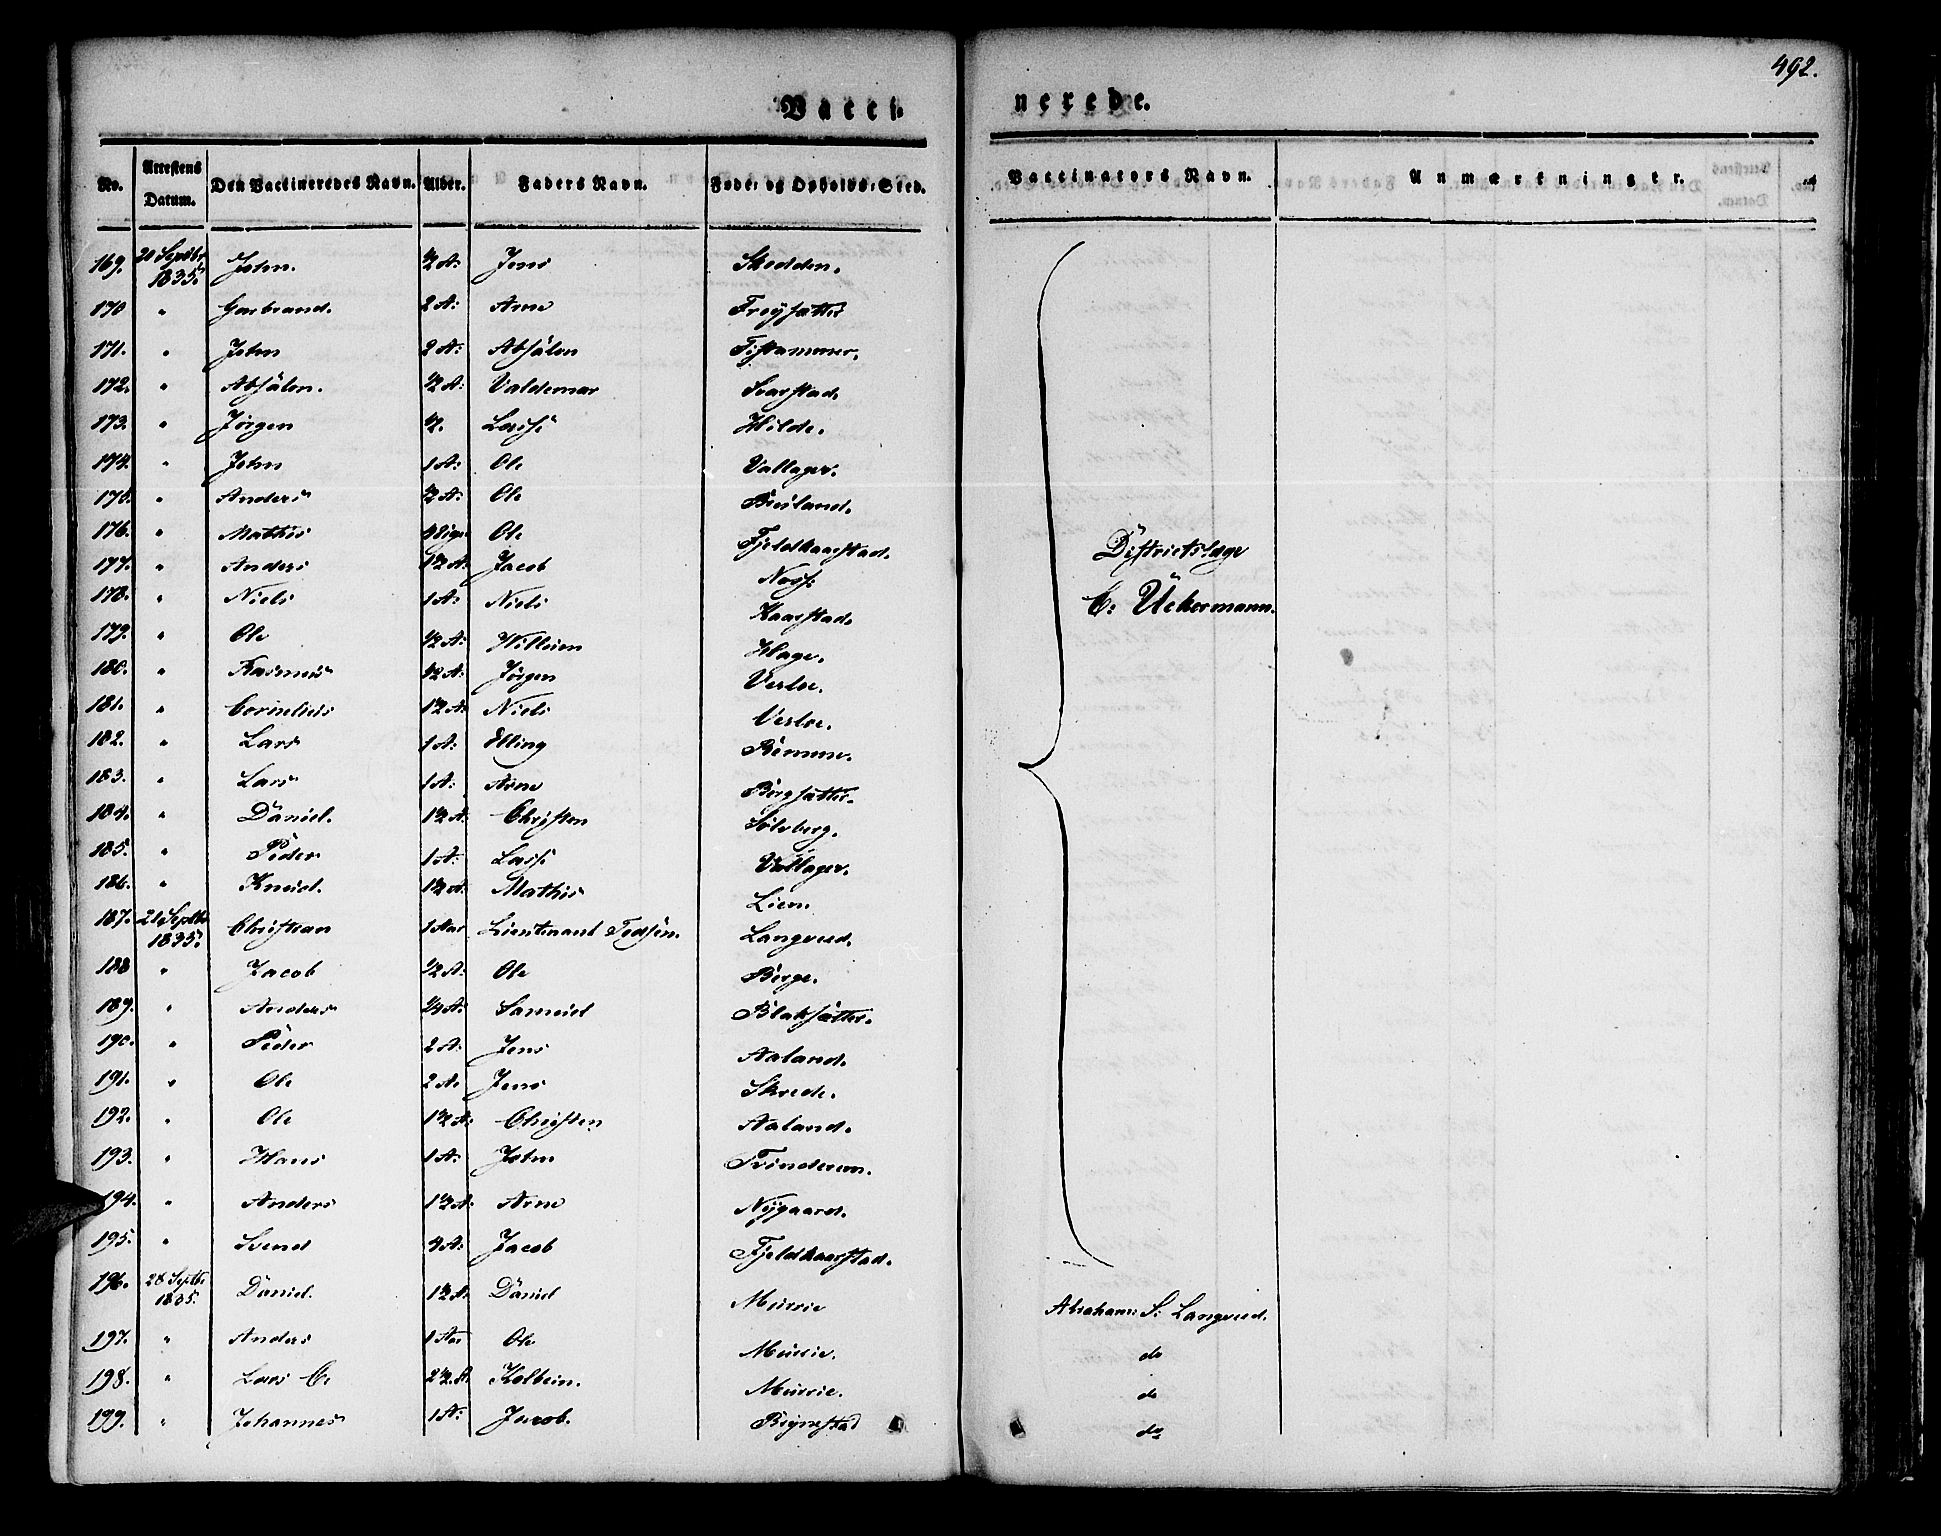 492.
Vacci- nerede.
No. Attestens Datum. Den Vaccineredes Navn. Alder. Faders Navn. Føde- og Opholds-Sted. Vaccinators Navn. Anmærkninger.
169. 20 Septbr 1835. John. ½ A: Jens Skedden.
170 " Garbrand. 2 A: Arne Frøysætter
171. " John 2 A: Absalon Tistammer.
172. " Absalon. ½ A: Valdemar Svarstad.
173. " Jørgen ½. Lasse Hilde.
174. " John 1 A: Ole Vallager.
175. " Anders ½ A: Ole Buland.
176. " Mathis Ole Fjeldkaarstad.
177. " Anders 1½ A: Jacob Noss:
178. " Niels 1 A: Niels Kaarstad.
179. " Ole ½ A: Willum Hage.
180. " Rasmus ½ A: Jørgen Verloe.
181. " Cornelius 1½ A: Niels Verloe.
182. " Lars 1 A: Elling Rømme.
183. " Lars 1 A: Arne Bergsætter.
184. " Daniel. 1½ A: Christen Sølvberg.
185. " Peder 1 A: Lasse Vallager.
186. " Knud. 1½ A: Mathis Lien.
187. 21 Septbr 1835. Christian 1 Aar Lieutenant Langvod.
188 " Jacob ½ A: Ole Berge.
189. " Anders ¼ A: Samuel Blaksætter.
190. " Peder 2 A: Jens Aaland.
191. " Ole 2 A. Jens Skrede.
192. " Ole 1½ A: Christen Aaland.
193. " Hans 1 A: John Tvinderem.
194. " Anders 1½ A: Arne Nygaard.
195. " Svend 4 A: Jacob Fjeldkaarstad.
Districtslæge
C: Uckermann.
196. 28 Septbr 1835. Daniel. 1½ A. Daniel Murrie Abraham S: Langvod.
197. " Anders 1 Aar Ole Murrie. do
198. " Lars C. 2½ A. Kolbein. Murrie. do
199. " Johannes 1 A: Jacob. Brynestad do